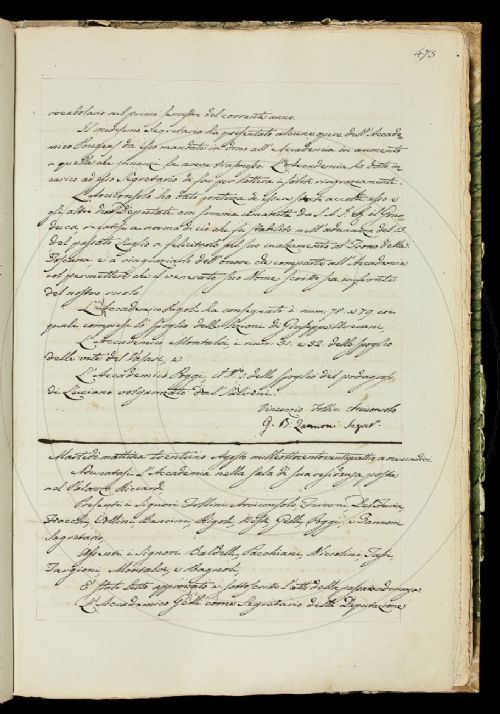 473
vocabolario nel primo semestre del corrente anno.
Il medesimo Segretario ha presentato alcune opere dell'Accade
mico Pouqens da esso mandate in dono all'Accademia in aumento
a quelle che innanzi le aveva trasmesse. L'Accademia ha dato in
carico ad esso Segretario di far per lettera i soliti ringraziamenti.
L'Arciconsolo ha dato contezza di essere stati accolti esso e
gli altri due Deputati con somma amabilità da S. A. I. e R. il Gran
duca, recatisi a norma di ciò che fu stabilito nell'adunanza del 13.
del passato Luglio a felicitarlo pel suo inalzamento al Trono della
Toscana e a ringraziarlo dell'onore che comparte all'Accademia
col permettere che il venerato suo Nome scritto sia nel fronte
del nostro ruolo.
L'Accademico Rigoli ha consegnato i num. 78 e 79, coi
quali compiesi lo spoglio delle Lezioni di Giuseppe Averani,
L'Accademico Montalvi i num. 31. e 32. dello spoglio
delle vite del Vasari, e
L'Accademico Poggi il N.º 1. dello spoglio del
di Luciano volgarizzato dal Salvini.
Vincenzio Follini Arciconsolo
G. B. Zannoni Segret.
Martedì mattina trentuno Agosto milleottocentoventiquattro a ore undici
Adunatasi l'Accademia nella sala di sua residenza posta
nel Palazzo Riccardi
Presenti i Signori Follini Arciconsolo, Ferroni, Del Furia,
Fiacchi, Collini, Bencini, Rigoli, Nesti, Gelli, Poggi, e Zannoni
Segretario,
Assenti i Signori Baldelli, Pacchiani, Niccolini,
Targioni, Montalvi, e Bagnoli.
È stato letto approvato e sottoscritto l'atto della passata adunanza.
L'Accademico Gelli come Segretario della Deputazione